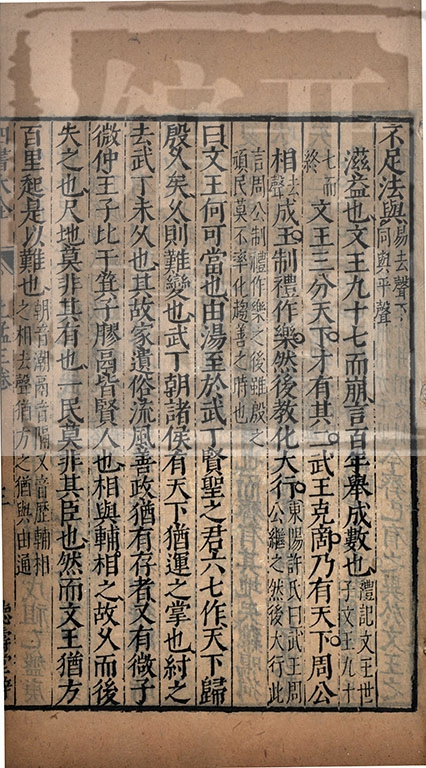 不足法與易去聲下同與平聲
滋益也文王九十七而崩言百年舉成數也禮記文王世子文王九十
七而終文王三分天下才有其二武王克商乃有天下周公
相去聲成王制禮作樂然後教化大行東陽許氏曰武王周公繼之然後大行此
言周公制禮作樂之後雖殷之頑民莫不率化趨善之時也
曰文王何可當也由湯至於武丁賢聖之君六七作天下歸
殷久矣久則難變也武丁朝諸侯有天下猶運之掌也紂之
去武丁未久也其故家遺俗流風善政猶有存者又有微子
微仲王子比干箕子膠鬲皆賢人也相與輔相之故久而後
失之也尺地莫非其有也一民莫非其臣也然而文王猶方
百里起是以難也朝音潮鬲音隔又音歷輔相之相去聲猶方之猶與由通